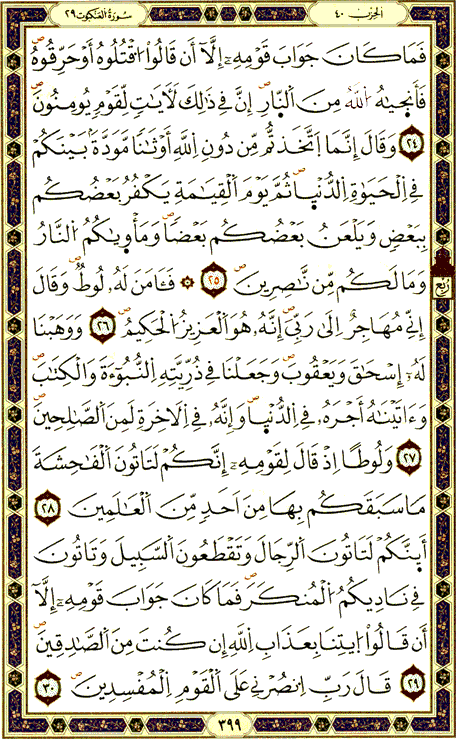 سُورَةُ الْعَنْكَبُوتِ ٢٩
الحزب ٤٠
فَمَا كَانَ جَوَابَ قَوْمِهِۦٓ إِلَّآ أَن قَالُوا۟ اقْتُلُوهُ أَوْ حَرِّقُوهُ
فَأَنجَىٰهُ اللَّهُ مِنَ النَّارِ إِنَّ فِي ذَٰلِكَ لَأَيَٰتٍ لِّقَوْمٍ يُومِنُونَ
٢٤ وَقَالَ إِنَّمَا اتَّخَذتُّم مِّن دُونِ اللَّهِ أَوْثَٰنًا مَّوَدَّةً بَيْنَكُمْ
فِي الْحَيَوٰةِ الدُّنْيَا ثُمَّ يَوْمَ الْقِيَٰمَةِ يَكْفُرُ بَعْضُكُم
بِبَعْضٍ وَيَلْعَنُ بَعْضُكُم بَعْضًا وَمَأْوَىٰكُمُ النَّارُ
وَمَا لَكُم مِّن نَّٰصِرِينَ ٢٥ ۞ فَـَٔامَنَ لَهُۥ لُوطٌ وَقَالَ
إِنِّي مُهَاجِرٌ إِلَىٰ رَبِّيَ إِنَّهُۥ هُوَ الْعَزِيزُ الْحَكِيمُ ٢٦ وَوَهَبْنَا
لَهُۥٓ إِسْحَٰقَ وَيَعْقُوبَ وَجَعَلْنَا فِي ذُرِّيَّتِهِ النُّبُوٓءَةَ وَالْكِتَٰبَ
وَءَاتَيْنَٰهُ أَجْرَهُۥ فِي الدُّنْيَا وَإِنَّهُۥ فِي الْأَخِرَةِ لَمِنَ الصَّٰلِحِينَ
٢٧ وَلُوطًا إِذْ قَالَ لِقَوْمِهِۦٓ إِنَّكُمْ لَتَاتُونَ الْفَٰحِشَةَ
مَا سَبَقَكُم بِهَا مِنْ أَحَدٍ مِّنَ الْعَٰلَمِينَ ٢٨
أَىِٕنَّكُمْ لَتَاتُونَ الرِّجَالَ وَتَقْطَعُونَ السَّبِيلَ وَتَاتُونَ
فِي نَادِيكُمُ الْمُنكَرَ فَمَا كَانَ جَوَابَ قَوْمِهِۦٓ إِلَّآ
أَن قَالُوا۟ ايتِنَا بِعَذَابِ اللَّهِ إِن كُنتَ مِنَ الصَّٰدِقِينَ
٢٩ قَالَ رَبِّ انصُرْنِي عَلَى الْقَوْمِ الْمُفْسِدِينَ ٣٠
ربع
٣٩٩